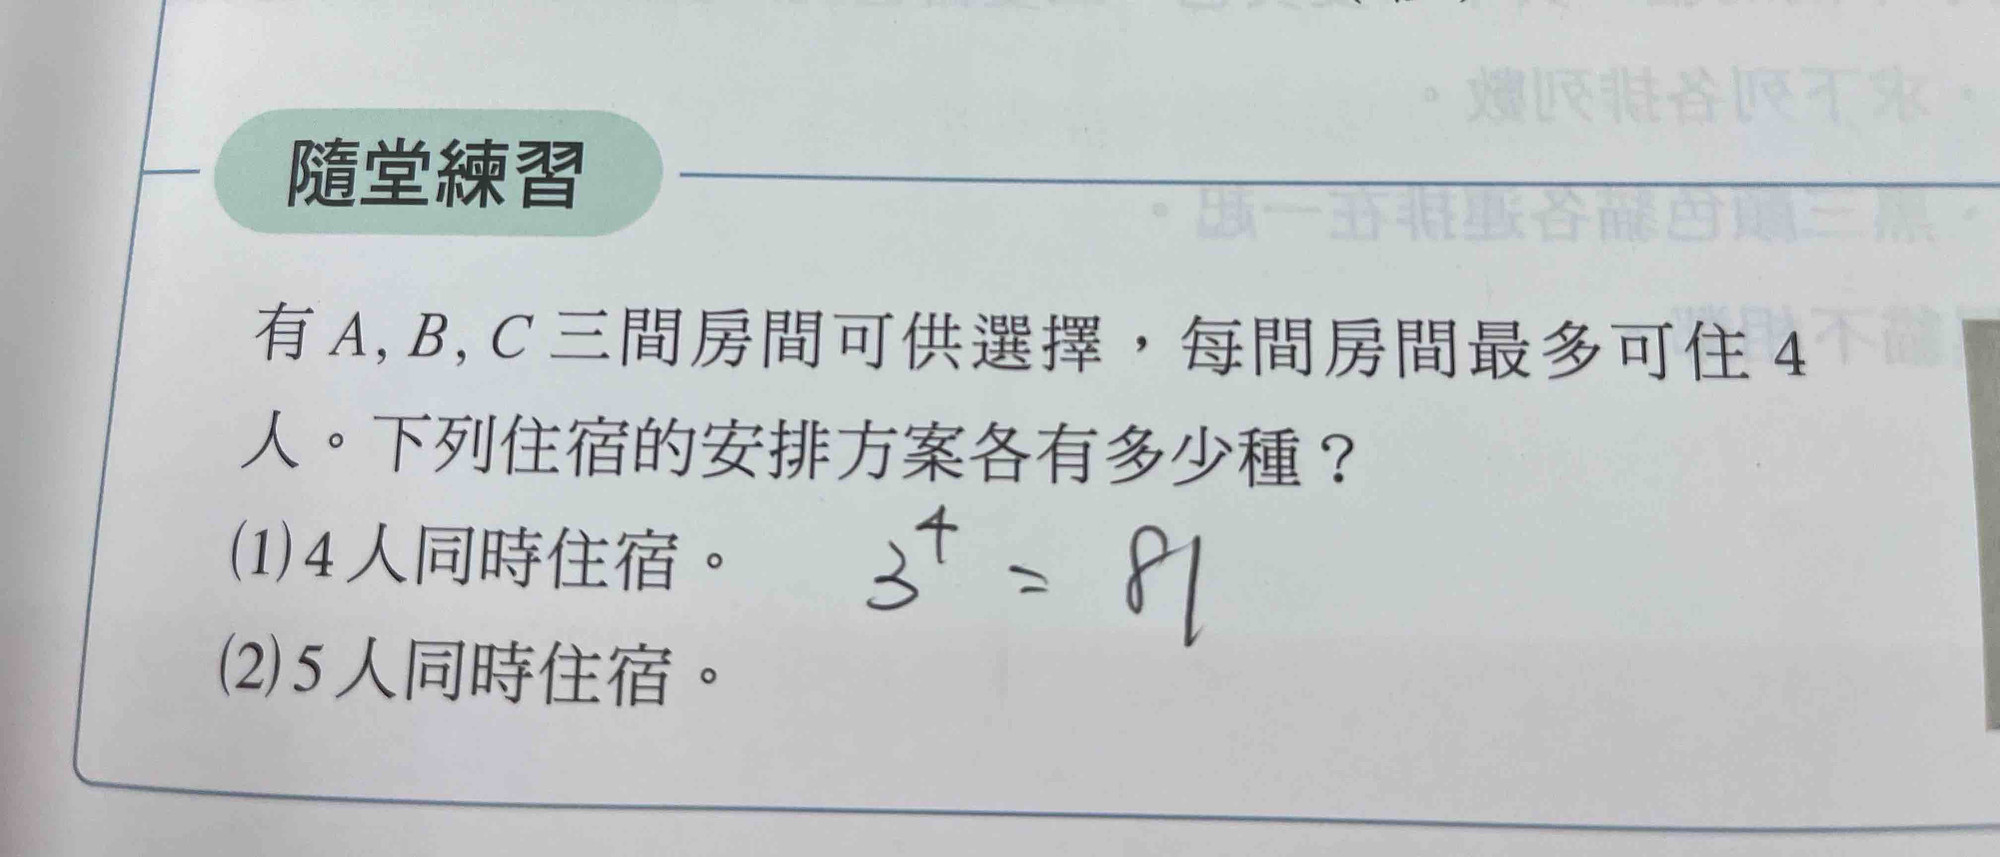 隨堂練習
有 A, B, C 三間房間可供選擇，每間房間最多可住 4
人。下列住宿的安排方案各有多少種？
(1) 4 人同時住宿。 3⁴ = 81
(2) 5 人同時住宿。